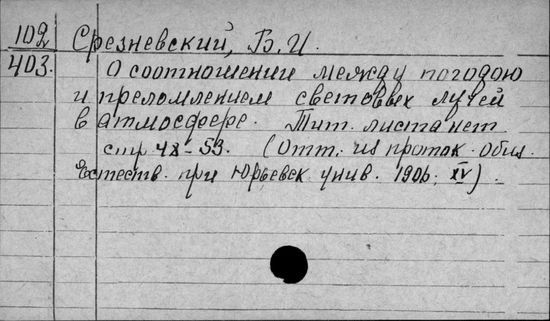 102 Срезневский, Б. И.
403. О соотношении между погодою
и преломлением световых лучей
в атмосфере. Тит. листа нет
стр 48-53. (Отт. из проток. общ.
Естеств. при Юрьевск. унив. 1906. XV).